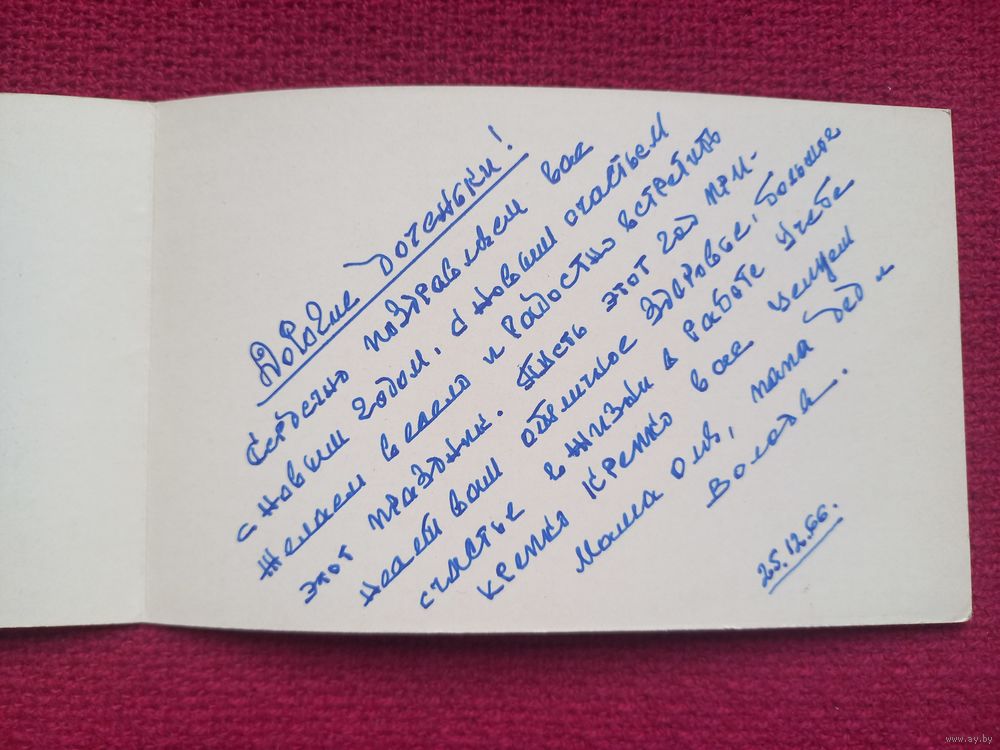 Дорогие доченьки!
Сердечно поздравляем вас
с Новым годом, с новым счастьем
Желаем весело и радостно встретить
этот праздник. Пусть этот год при-
несёт вам отличное здоровье, большое
счастье в жизни в работе учебе
Крепко крепко вас целуем
Мама Оля, папа дед и
Володя.
25.12.66.
www.ay.by